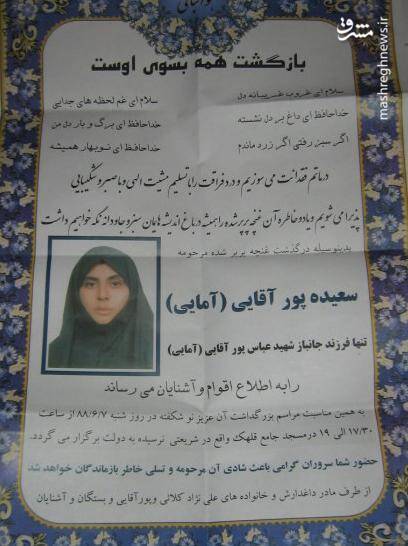 مشرق
mashreghnews.ir
بازگشت همه بسوی اوست
سلام ای غروب غریبانه دل
سلام ای غم لحظه های جدایی
خداحافظ ای داغ بر دل نشسته
خداحافظ ای برگ و بار دل من
اگر سبز رفتی اگر زرد ماندم
خداحافظ ای نوبهار همیشه
در ماتم فقدانت می سوزیم و درد فراقت را با تسلیم مشیت الهی و با صبر و شکیبایی
پذیرا می شویم و یاد و خاطره آن غنچه پرپر شده را همیشه در باغ اندیشه هامان سبز و جاودانه نگه خواهیم داشت
بدینوسیله درگذشت غنچه پرپر شده مرحومه
سعیده پور آقایی (آمایی)
تنها فرزند جانباز شهید عباس پور آقایی (آمایی)
را به اطلاع اقوام و آشنایان می رساند
به همین مناسبت مراسم بزرگداشت آن عزیز نو شکفته در روز شنبه ۸۸/۶/۷ از ساعت
۱۷/۳۰ الی ۱۹ در مسجد جامع قلهک واقع در شریعتی نرسیده به دولت برگزار می گردد.
حضور شما سروران گرامی باعث شادی آن مرحومه و تسلی خاطر بازماندگان خواهد شد
از طرف مادر داغدارش و خانواده های علی نژاد کلائی وپورآقایی و بستگان و آشنایان